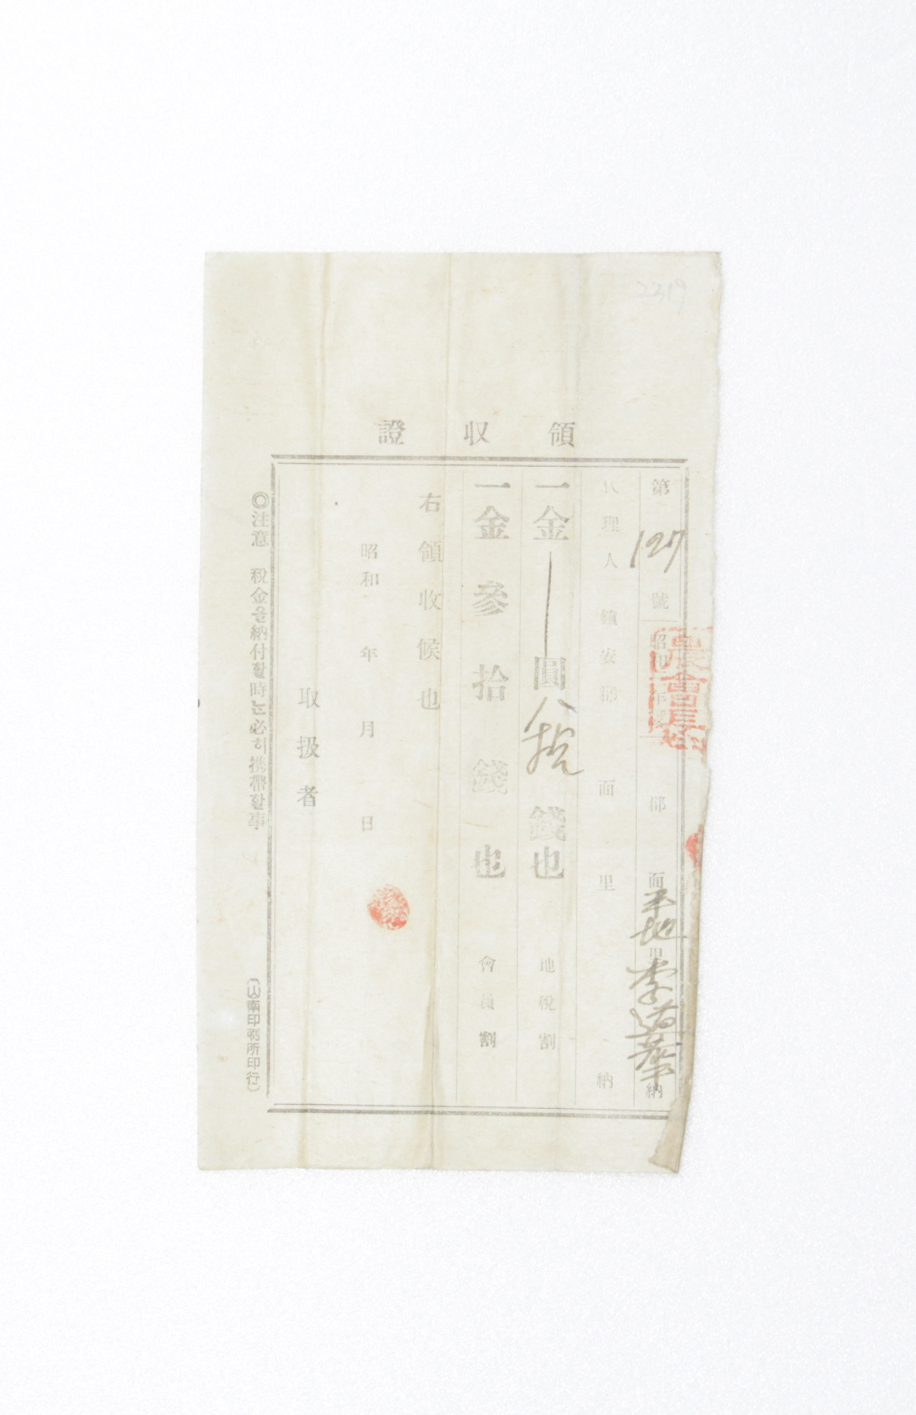 2319
領收證
第127號 昭和 年 郡 面 平地里 李 納
代理人 鎭安郡 面 里 納
一金 圓八拾錢也 地稅割
一金參拾錢也 會員割
右領收候也
昭和 年 月 日
取扱者
◎注意 税金을納付할時는必히携帶할事
(山南印刷所印行)